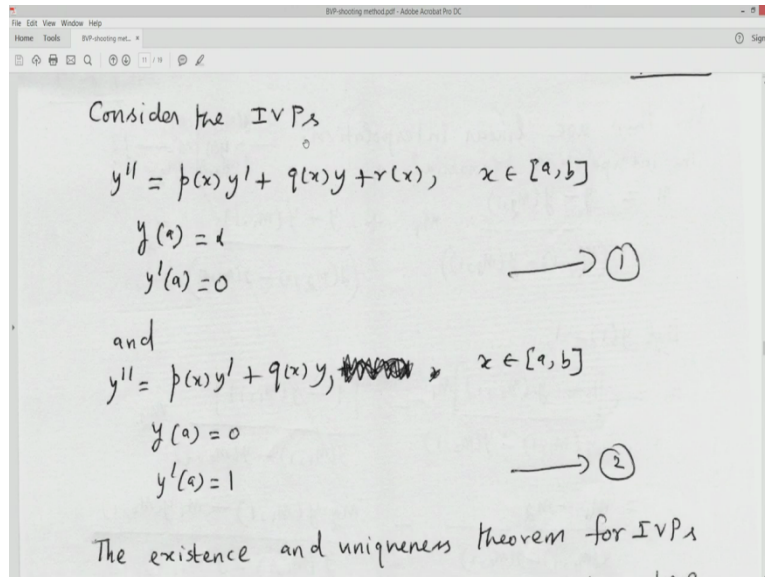 BVP-shooting method.pdf - Adobe Acrobat Pro DC
File Edit View Window Help
Home Tools BVP-shooting met... × Sign
11 / 19
Consider the IVPs
y'' = p(x) y' + q(x) y + r(x), x ∈ [a, b]
y(a) = α
y'(a) = 0 ⟶ ①
and
y'' = p(x) y' + q(x) y, x ∈ [a, b]
y(a) = 0
y'(a) = 1 ⟶ ②
The existence and uniqueness theorem for IVPs